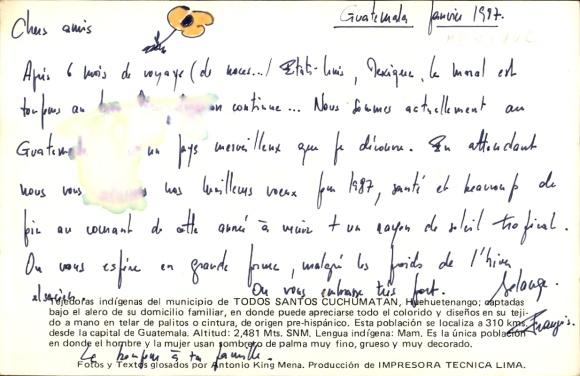 Guatemala Janvier 1987.
Chers amis
Après 6 mois de voyage (de noces...) Etats-Unis, Mexique, le moral est
toujours au on continue... Nous sommes actuellement au
un pays merveilleux que je découvre. En attendant
nous vous nos meilleurs voeux pour 1987, santé et beaucoup de
joie au courant de cette année à venir + un rayon de soleil tropical.
On vous espère en grande forme, malgré les froids de l'hiver
alsacien. On vous embrasse très fort. Solange.
François.
Le bonjour à ta famille.
Tejedoras indígenas del municipio de TODOS SANTOS CUCHUMATAN, Huehuetenango; captadas
bajo el alero de su domicilio familiar, en donde puede apreciarse todo el colorido y diseños en su teji-
do a mano en telar de palitos o cintura, de origen pre-hispánico. Esta población se localiza a 310 kms.
desde la capital de Guatemala. Altitud: 2,481 Mts. SNM. Lengua indígena: Mam. Es la única población
en donde el hombre y la mujer usan sombrero de palma muy fino, grueso y muy decorado.
Fotos y Textos glosados por Antonio King Mena. Producción de IMPRESORA TECNICA LIMA.